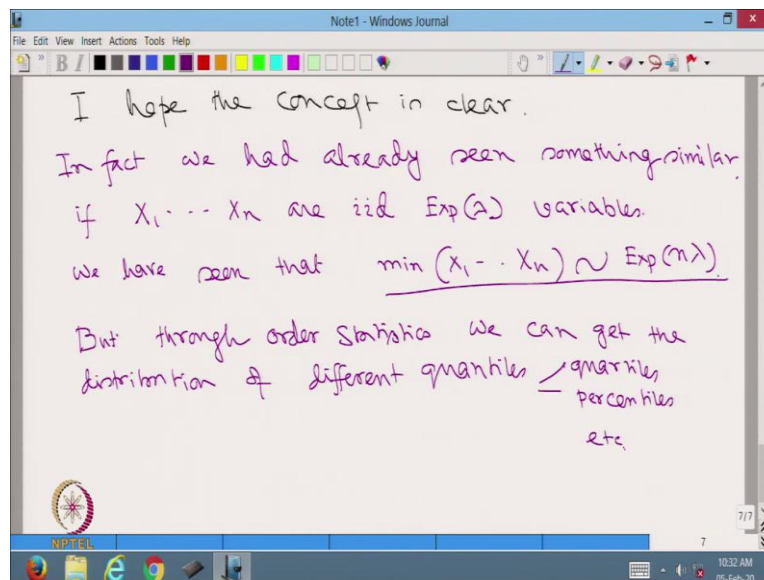 Note1 - Windows Journal
File Edit View Insert Actions Tools Help
B I
I hope the concept in clear.
In fact we had already seen something similar.
if X₁ . . . Xₙ are iid Exp(λ) variables.
we have seen that min (X₁ - . Xₙ) ~ Exp(nλ)
But through order Statistics we can get the
distribution of different quantiles quartiles
percentiles
etc.
7/7
NPTEL
7
10:32 AM
05-Feb-20